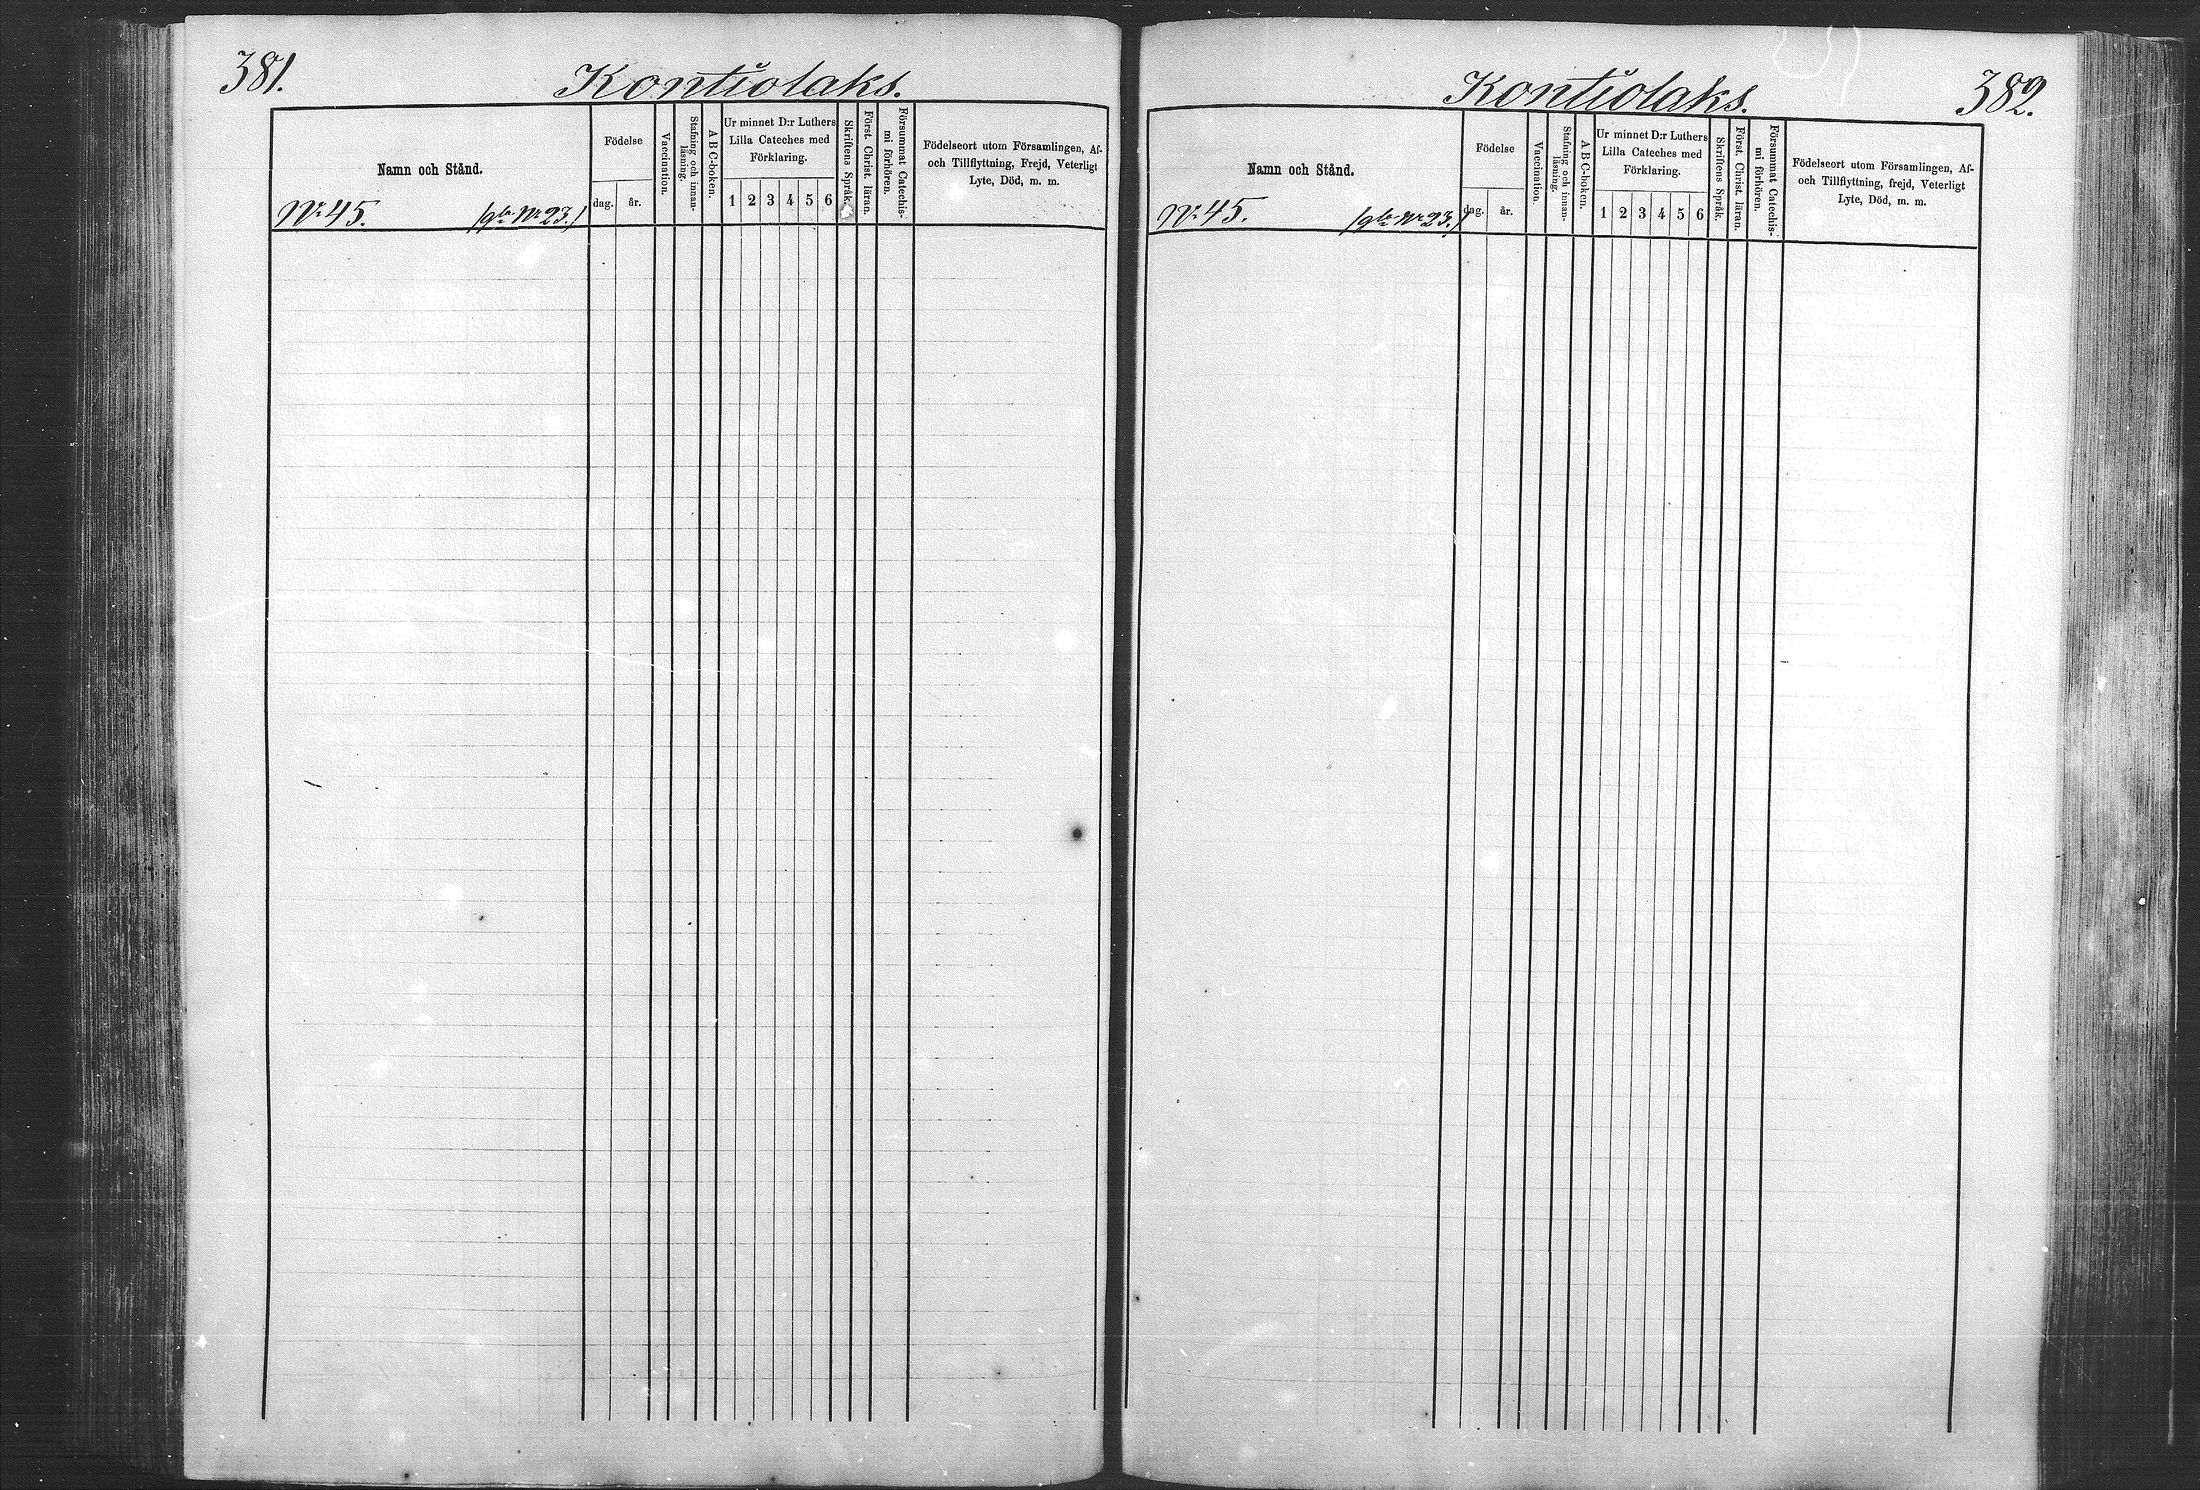 381.
Kontiolaks.
Namn och Stånd.
Födelse
dag.
år.
Vaccination.
Stafning och innan-
läsning.
ABC-boken.
Ur minnet D:r Luthers
Lilla Cateches med
Förklaring.
1 2 3 4 5 6
Skriftens Språk.
Först. Christ. läran.
Försummat Catechis-
mi förhören.
Födelseort utom Församlingen, Af-
och Tillflyttning, Frejd, Veterligt
Lyte, Död, m. m.
No 45. /gla No 23./
Kontiolaks.
382.
Namn och Stånd.
Födelse
dag.
år.
Vaccination.
Stafning och innan-
läsning.
ABC-boken.
Ur minnet D:r Luthers
Lilla Cateches med
Förklaring.
1 2 3 4 5 6
Skriftens Språk.
Först. Christ. läran.
Försummat Catechis-
mi förhören.
Födelseort utom Församlingen, Af-
och Tillflyttning, frejd, Veterligt
Lyte, Död, m. m.
No 45. /gla No 23./